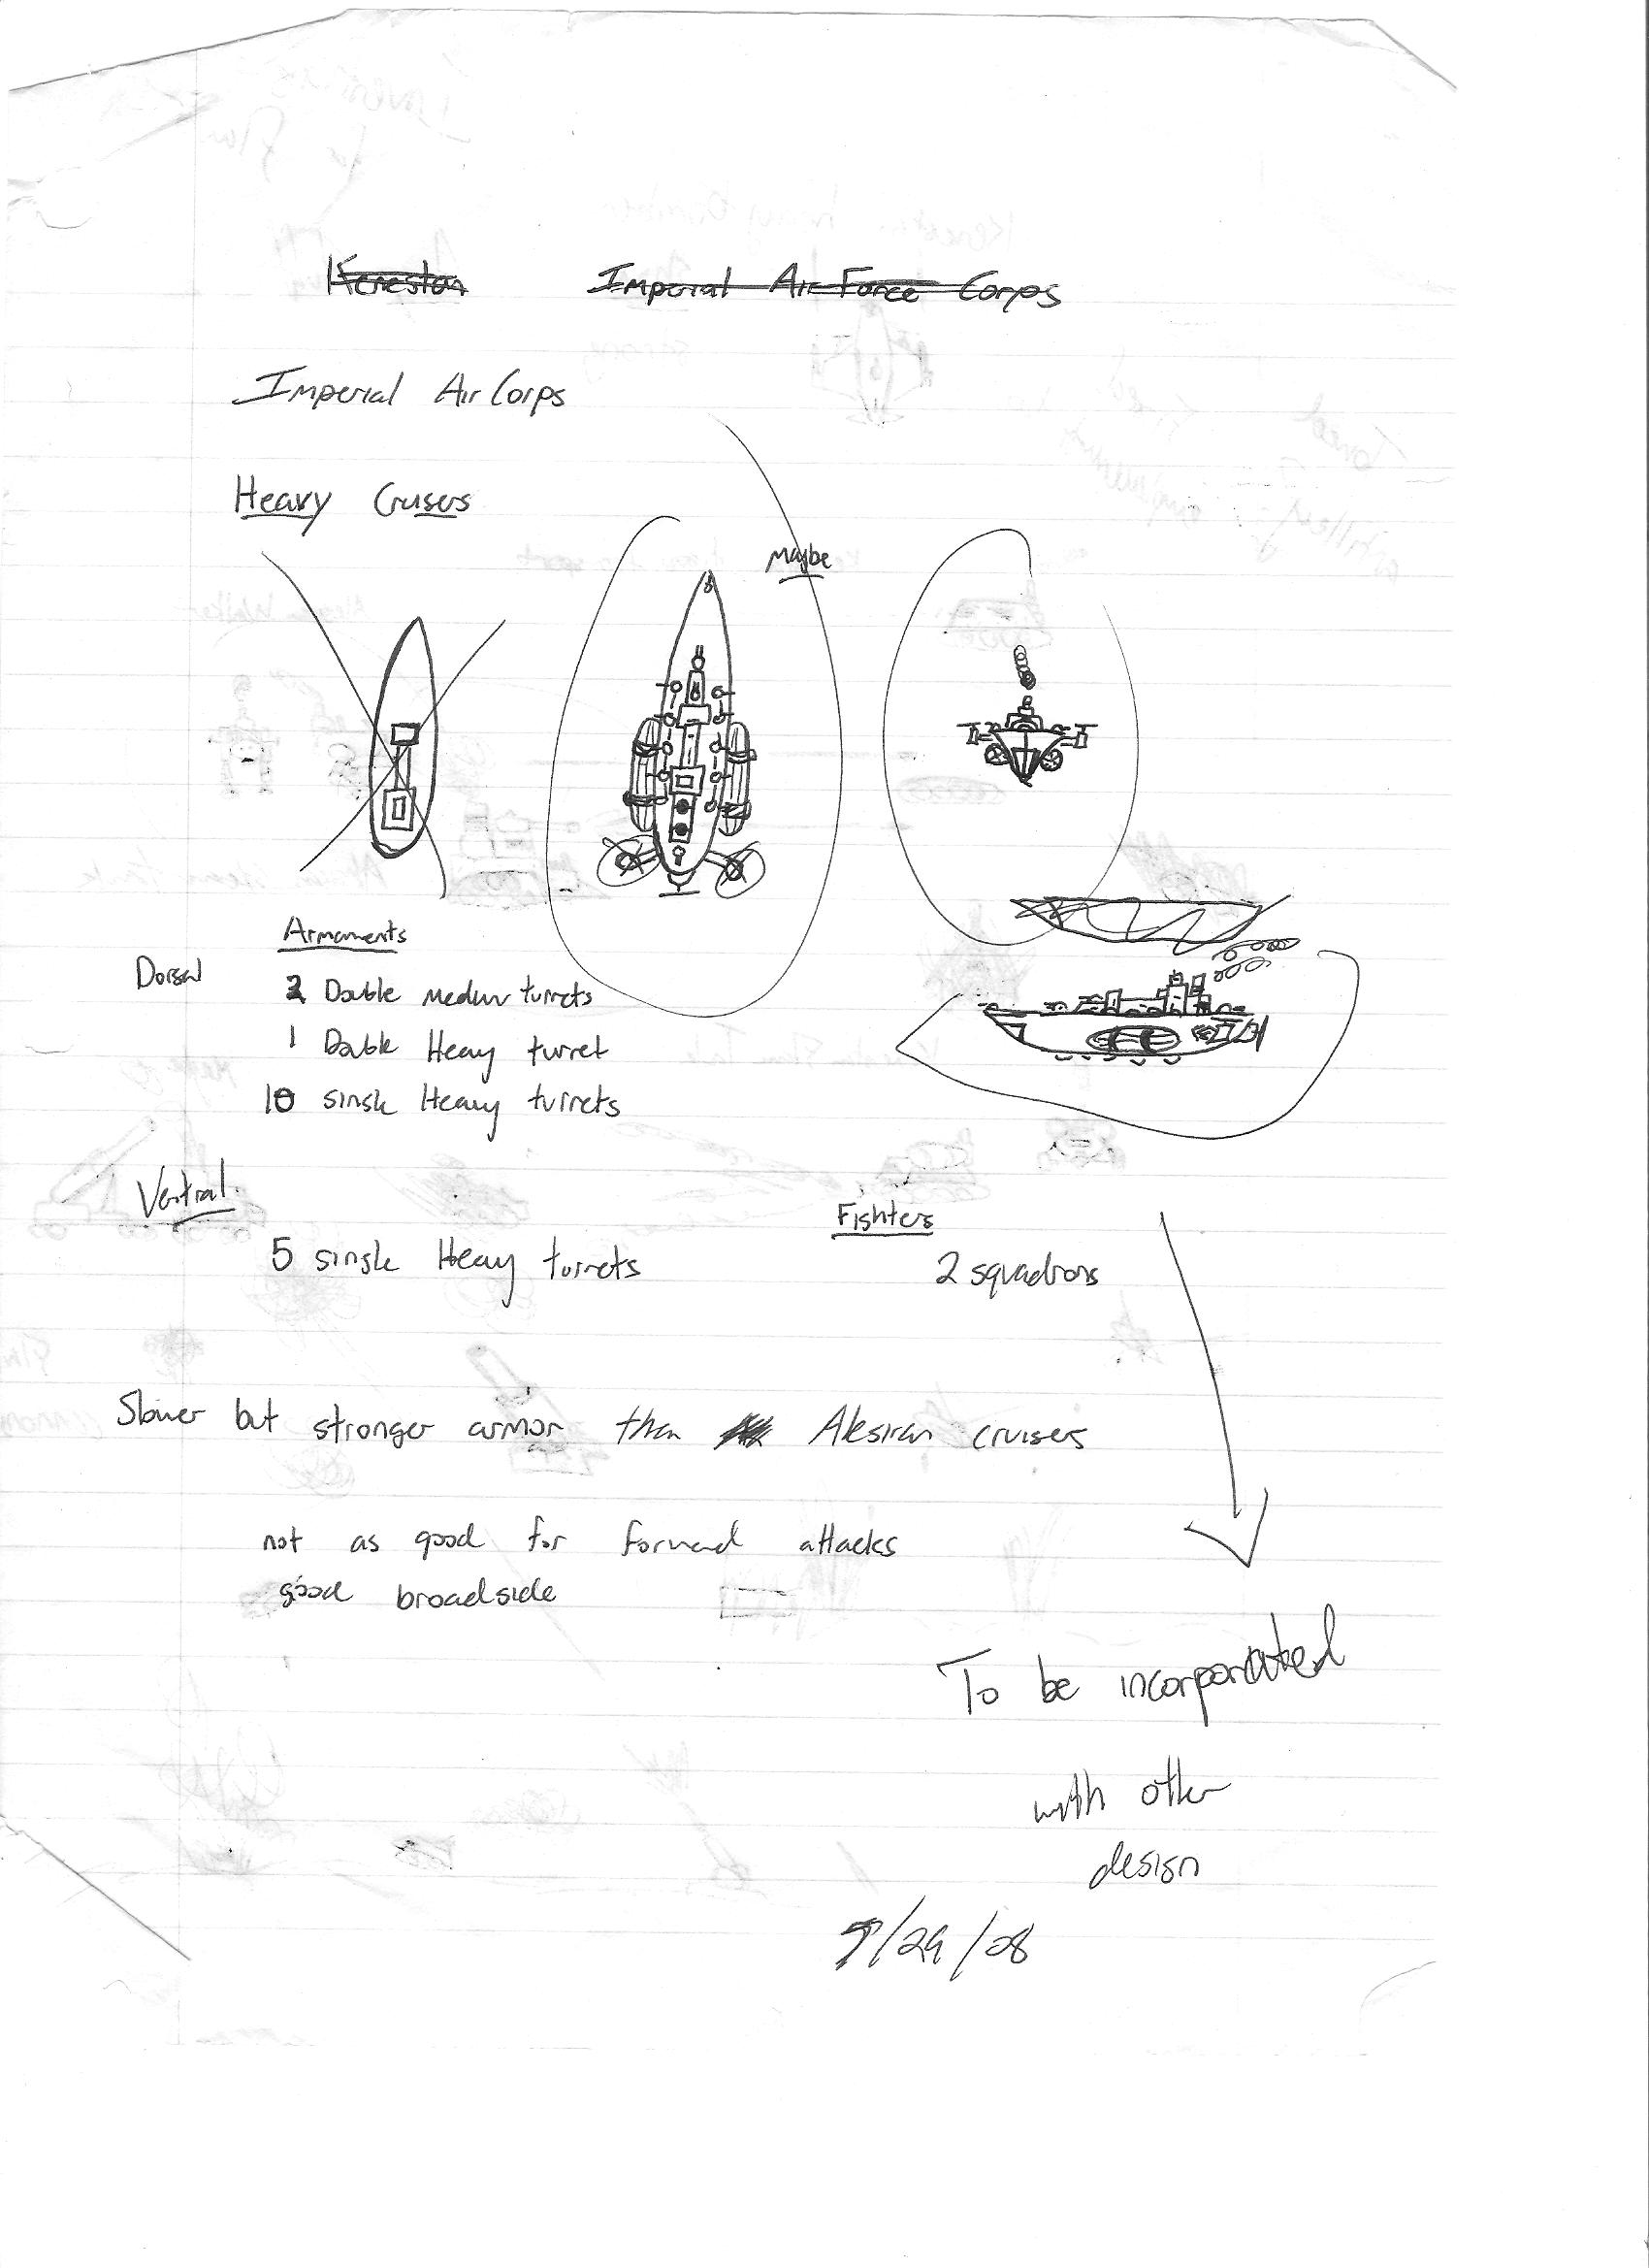 Kereston Imperial Air Force Corps
Imperial Air Corps
Heavy Cruisers
Maybe
Armaments
Dorsal
2 Double medium turrets
1 Double Heavy turret
10 single Heavy turrets
Ventral
5 single Heavy turrets
Fighters
2 squadrons
Slower but stronger armor than Alesian cruisers
not as good for forward attacks
good broadside
To be incorporated
with other
design
/29/08